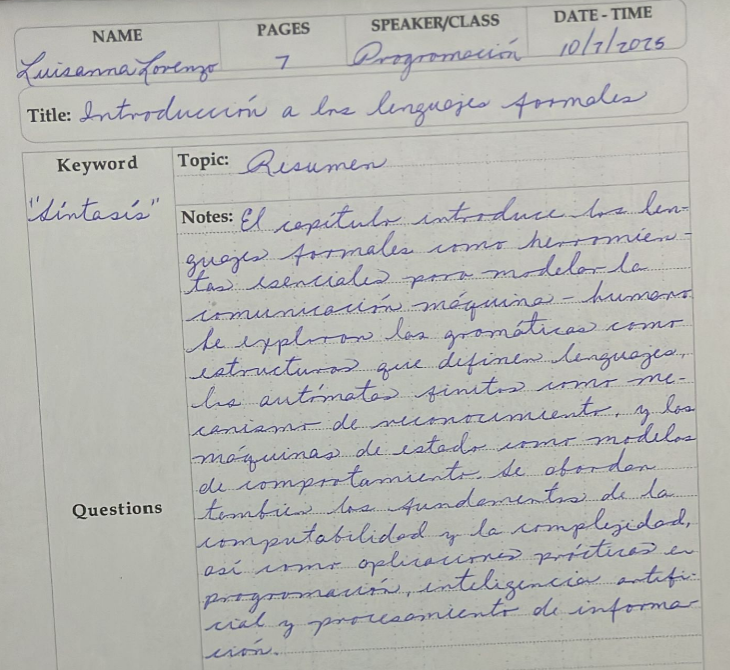 NAME PAGES SPEAKER/CLASS DATE - TIME
Luisanna Lorenzo 7 Programación 10/7/2025
Title: Introducción a los lenguajes formales
Keyword Topic: Resumen
"Síntasis" Notes: El capítulo introduce los len-
guajes formales como herramien-
tas esenciales para modelar la
comunicación máquina - humano.
Se exploran las gramáticas como
estructuras que definen lenguajes,
los autómatas finitos como me-
canismo de reconocimiento, y los
máquinas de estado como modelos
de comportamiento. Se abordan
también los fundamentos de la
computabilidad y la complejidad,
así como aplicaciones prácticas en
programación, inteligencia artifi-
cial y procesamiento de informa-
ción.
Questions